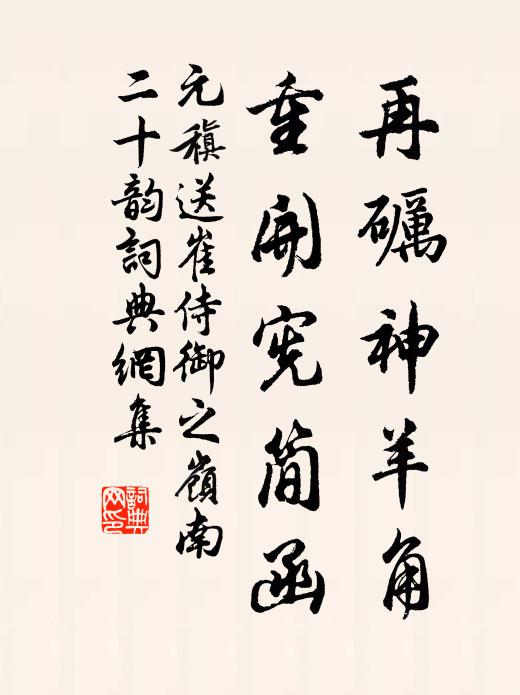 再礪神羊角
重開憲簡函
元稹送崔侍御之嶺南
二十韵詞典網集
詞典网印